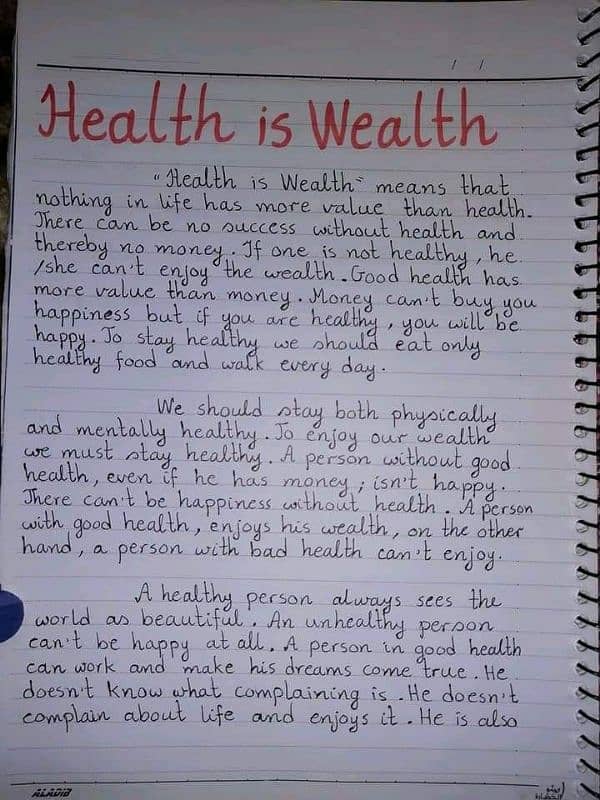 / /
Health is Wealth
"Health is Wealth" means that
nothing in life has more value than health.
There can be no success without health and
thereby no money. If one is not healthy, he
/she can't enjoy the wealth. Good health has
more value than money. Money can't buy you
happiness but if you are healthy, you will be
happy. To stay healthy we should eat only
healthy food and walk every day.
We should stay both physically
and mentally healthy. To enjoy our wealth
we must stay healthy. A person without good
health, even if he has money, isn't happy.
There can't be happiness without health. A person
with good health, enjoys his wealth, on the other
hand, a person with bad health can't enjoy.
A healthy person always sees the
world as beautiful. An unhealthy person
can't be happy at all. A person in good health
can work and make his dreams come true. He
doesn't know what complaining is. He doesn't
complain about life and enjoys it. He is also
ALADIB